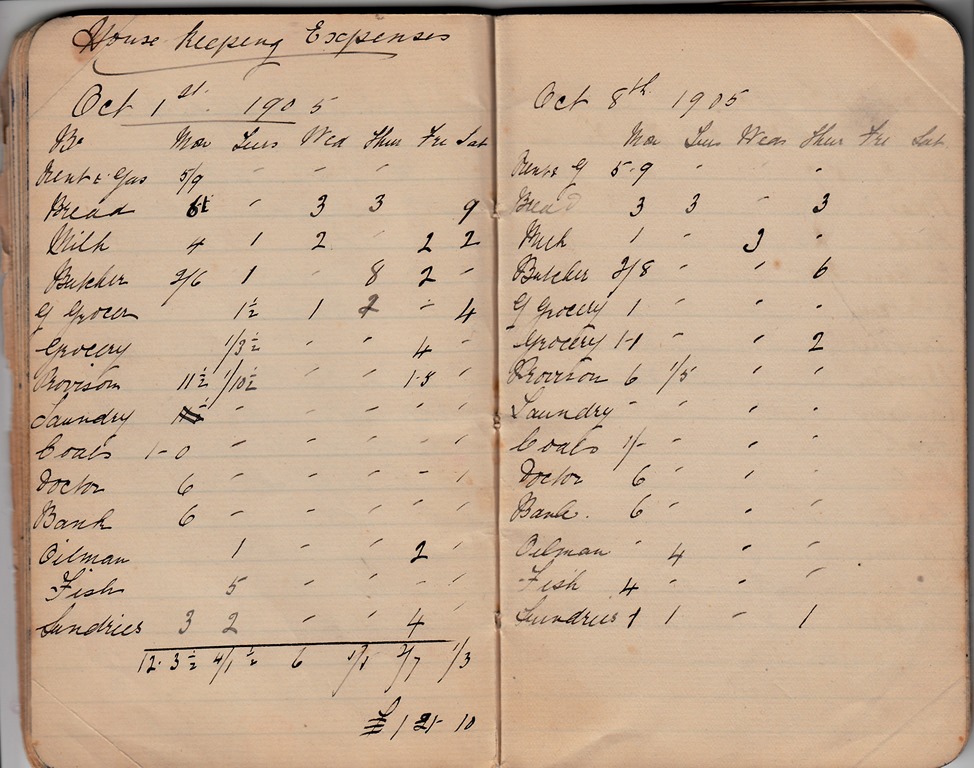 House Keeping Expenses
Oct 1st. 1905
Mon Tues Wed Thur Fri Sat
Rent & Gas 5/9 " " "
Bread " 3 3 9
Milk 4 1 2 " 2 2
Butcher 2/6 1 " 8 2 "
G Grocer 1½ 1 2 - 4
Grocery 1/3½ " " 4 "
Provison 11½ 1/10½ " " 1-5
Laundry " " " " "
Coals 1-0 " " " " "
Doctor 6 " " " " "
Bank 6 " " " " "
Oilman 1 " " 2 "
Fish 5 " " " "
Sundries 3 2 " " 4
12. 3½ 4/1½ 6 1/1 2/7 1/3
£ 1 21- 10
Oct 8th 1905
Mon Tues Weds Thur Fri Sat
Rent & G 5-9 " " "
Bread 3 3 " 3
Milk 1 " 3 "
Butcher 2/8 " " 6
G Grocery 1 " " "
Grocery 1-1 " 2
Provison 6 1/5 " "
Laundry " " " "
Coals 1/- " " "
Doctor 6 " " "
Bank. 6 " " "
Oilman " 4 " "
Fish 4 " " "
Sundries 1 1 " 1